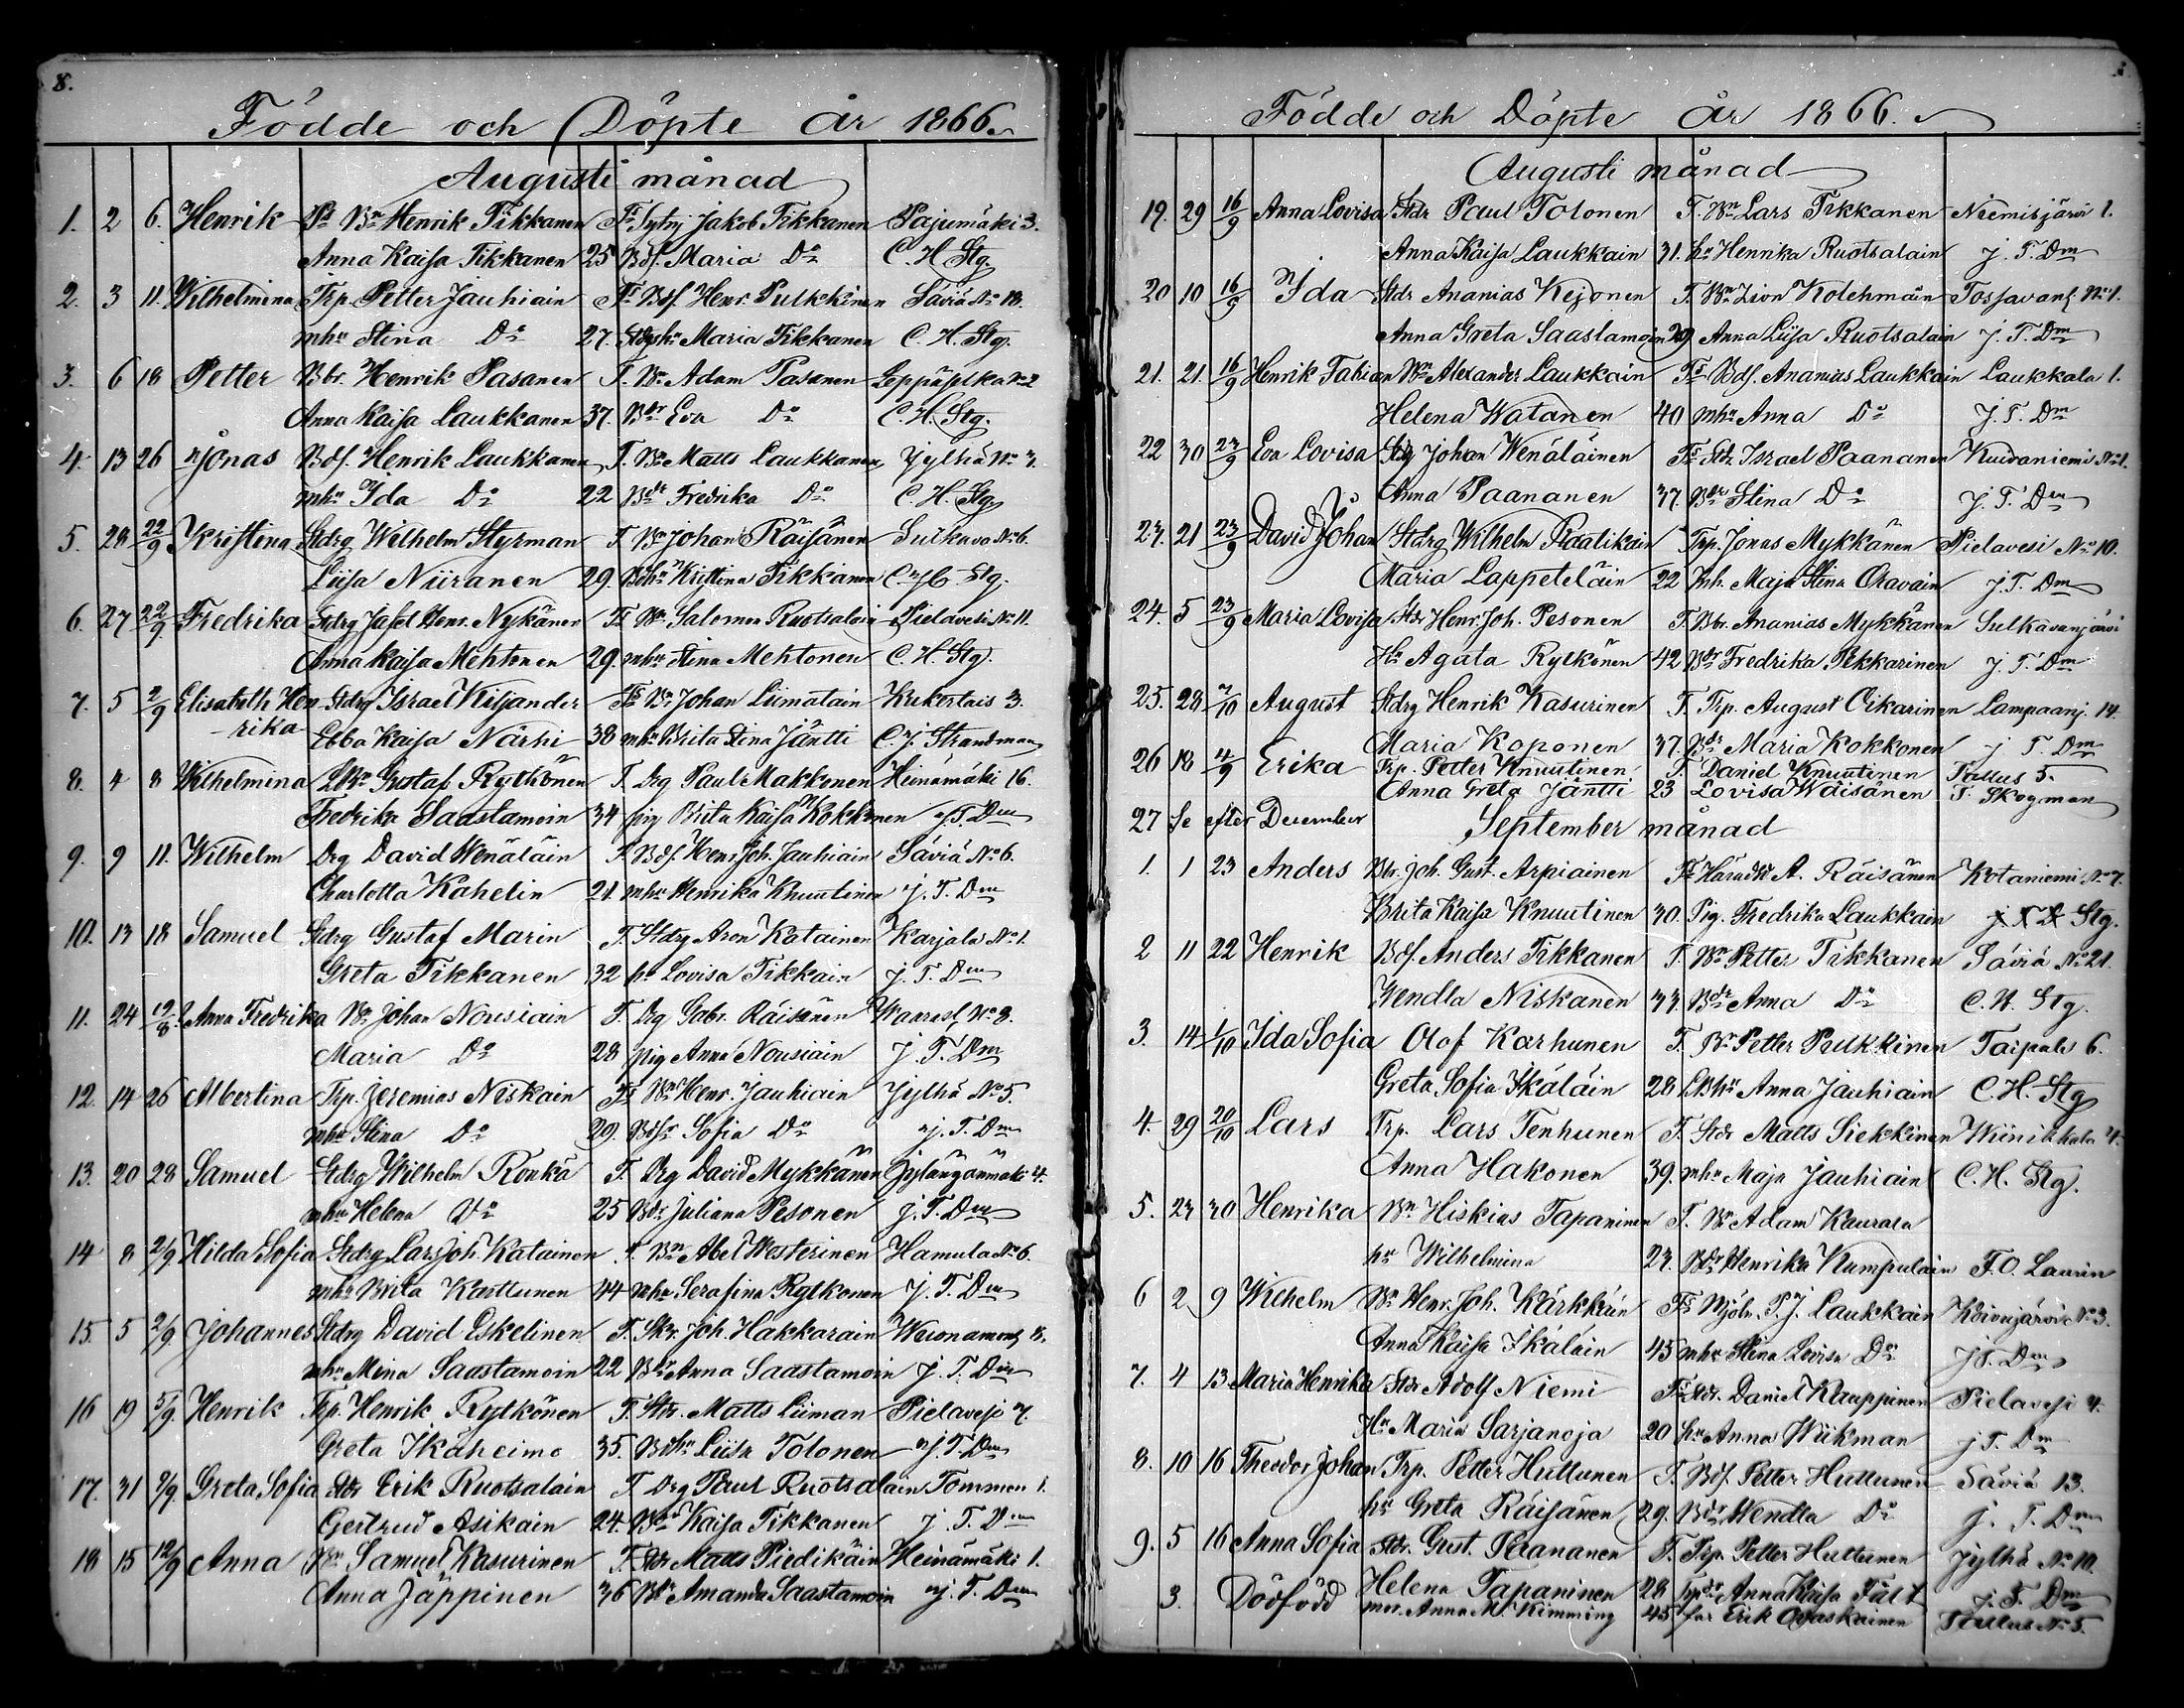 8.
Födde och Döpte År 1866.
Augusti månad
1. 2 6. Henrik Bn Henrik Tikkanen Jakob Tikkanen Pajumäki 3.
Anna Kaisa Tikkanen 25 Bdf. Maria Do C. H. Stg.
2. 3 11. Wilhelmina Trp. Petter Jauhiain Fr Bdf. Henr. Pulkkinen Säviä No 18.
mhu Stina Do 27. Maria Tikkanen C. H. Stg.
3. 6 18 Petter Bbr. Henrik Pasanen F. Bn Adam Pasanen Leppäselkä No 2
Anna Kaisa Laukkanen 37. Bdr Eva Do C. H. Stg.
4. 13 26 Jonas Bdf. Henrik Laukkanen F. Bn Matts Laukkanen Jylhä No 7.
mhu Ida Do 22 Bdr Fredrika Do C. H. Stg.
5. 28 22/9 Kristina Stdrg Wilhelm Styrman F. Bn Johan Räisänen Sulkava No 6.
Liisa Niiranen 29. Bdhu Kristina Tikkanen C. H. Stg.
6. 27 22/9 Fredrika Stdrg Jafet Henr. Nykänen Fr Bn Salomon Ruotsalain Pielavesi No 11.
Anna Kaisa Mehtonen 29. mhu Stina Mehtonen C. H. Stg.
7. 5 2/9 Elisabeth Hen Stdrg Israel Kiljander Fr Bn Johan Liimatain 3.
-rika Ebba Kaisa Närhi 38 mhu Brita Stina Jäntti C. J. Strandman
8. 4 8 Wilhelmina LBn Gustaf Rytkönen F. Drg Paul Makkonen Heinämäki 16.
Fredrika Saastamoin 34 pig Brita Kaisa Kokkonen J. T. Dm
9. 9 11. Wilhelm Drg David Wenäläin F. Bdf. Henr. Joh. Jauhiain Säviä No 6.
Charlotta Kahelin 21. mhu Henrika Knuutinen J. T. Dm
10. 13 18 Samuel Stdrg Gustaf Marin F. Stdrg Aron Katainen Karjala No 1.
Greta Tikkanen 32 hu Lovisa Tikkain J. T. Dm
11. 24 19/8 Anna Fredrika Bn Johan Nousiain F. Drg Gabr. Räisänen No 8.
Maria Do 28 pig Anna Nousiain J. T. Dm
12. 14 26 Albertina Trp. Jeremias Niskain Fr Bn Henr. Jauhiain Jylhä No 5.
mhu Stina Do 29. Sofia Do J. T. Dm
13. 20 28 Samuel Stdrg Wilhelm Ronkä F. Drg David Mykkänen Jylängönmäki 4.
mhu Helena Do 25 Bdr Juliana Pesonen J. T. Dm
14 8 2/9 Hilda Sofia Stdrg Lars Joh. Katainen F. Bn Abel Westerinen Hamula No 6.
mhu Brita Karttunen 44 mhu Serafina Rytkonen J. T. Dm
15. 5 2/9. Johannes Stdrg David Eskelinen F. Skr. Joh. Hakkarain
mhu Mina Saastamoin 22 Anna Saastamoin J. T. Dm
16 19 5/9. Henrik Trp. Henrik Rytkönen F. Str. Matts Liiman Pielavesi 7.
Greta Ikäheimo 35. Bdhu Liisa Tolonen J. T. Dm
17. 31 9/9. Greta Sofia Stdr Erik Ruotsalain F Drg Paul Ruotsalain Tommon 1.
Gertrud Asikain 24. Kaisa Tikkanen J. T. Dm
18 15 12/9 Anna Bn Samuel Kasurinen F. Stdr Matts Piedikäin Heinämäki 1.
Anna Jäppinen 36 Bdr Amanda Saastamoin J. T. Dm
Födde och Döpte År 1866.
Augusti månad
19. 29 16/9 Anna Lovisa Stdr Paul Tolonen F. Bn Lars Tikkanen Niemisjärvi 1.
Anna Kaisa Laukkain 31. hu Henrika Ruotsalain J. T. Dm
20 10 16/9 Ida Stdr Ananias Kejonen F. Bn Zion Kolehmain Tossavanl. No 1.
Anna Greta Saastamoin 29. Anna Liisa Ruotsalain J. T. Dm
21. 21. 16/9 Henrik Fabian Bn Alexander Laukkain Fr Bdf. Ananias Laukkain Laukkala 1.
Helena Watanen 40 mhu Anna Do J. T. Dm
22 30 23/9 Eva Lovisa Stdg Johan Wenäläinen Fr Stdr Israel Paananen Kuivaniemi No 1.
Anna Paananen 37. Bdr Stina Do J. T. Dm
23. 21 23/9 David Johan Stdrg Wilhelm Trp. Jonas Mykkänen Pielavesi No 10.
Maria Lappeteläin 22 Inh. Maja Stina Oravain J. T. Dm
24. 5 23/9 Maria Lovisa Stdr Henr. Joh. Pesonen F. Bbr. Ananias Mykkänen Sulkavanjärvi
Hu Agata Rytkönen 42 Bdr Fredrika Pekkarinen J. T. Dm
25. 28 7/10 August Stdrg Henrik Kasurinen F. Trp. August Oikarinen Lampaanj. 14.
Maria Koponen 37. Bdr Maria Kokkonen J T. Dm
26 18 4/9 Erika Trp. Petter Knuutinen F. Daniel Knuutinen Tallus 5.
Anna Greta Jäntti 23 Lovisa Wäisänen T. Skogman
27 Se efter December
September månad
1. 1 23 Anders Bbr. Joh. Gust. Arpiainen Fr A. Räisänen Kotaniemi No 7.
Brita Kaisa Knuutinen 30. Pig. Fredrika Laukkain J T D Stg.
2 11 22 Henrik Bdf. Anders Tikkanen F. Bn Petter Tikkanen Säviä No 21.
Wendla Niskanen 33. Bdr Anna Do C. H. Stg.
3. 14 1/10 Ida Sofia Olof Karhunen F. Bn Petter Pulkkinen Taipale 6.
Greta Sofia Ikäläin 28 LBhu Anna Jauhiain C. H. Stg
4. 29 20/10 Lars Trp. Lars Tenhunen F. Stdr Matts Siekkinen Wiinikkala 4.
Anna Hakonen 39. mhu Maja Jauhiain C. H. Stg.
5. 23 30 Henrika Bn Hiskias Tapaninen F. Bn Adam
hu Wilhelmina 27. Bdr Henrika Kumpulain F. O. Laurin
6 2 9 Wilhelm Bn Henr. Joh. Kärkkäin Fr Mjöln. P. J. Laukkain Koivujärvi No 3.
Anna Kaisa Ikäläin 45 mhu Stina Lovisa Do J T. Dm
7. 4 13 Maria Henrika Stdr Adolf Niemi Fr Stdr. Daniel Kauppinen Pielavesi 4.
Hu Maria Sarjanoja 20 hu Anna Wiikman J T. Dm
8. 10 16 Theodor Johan Trp. Petter Huttunen F. Bdf. Petter Huttunen Säviä 13.
hu Greta Räisänen 29. Bdr Wendla Do J. T. Dm
9. 5 16 Anna Sofia Stdr. Gust. Paananen F. Trp. Petter Huttunen Jylhä No 10.
Helena Tapaninen 28 Anna Kaisa Fält J. T. Dm
3. Dödfödd mor. Anna M. Kimming 45 far Erik Ovaskainen Tallus No 5.